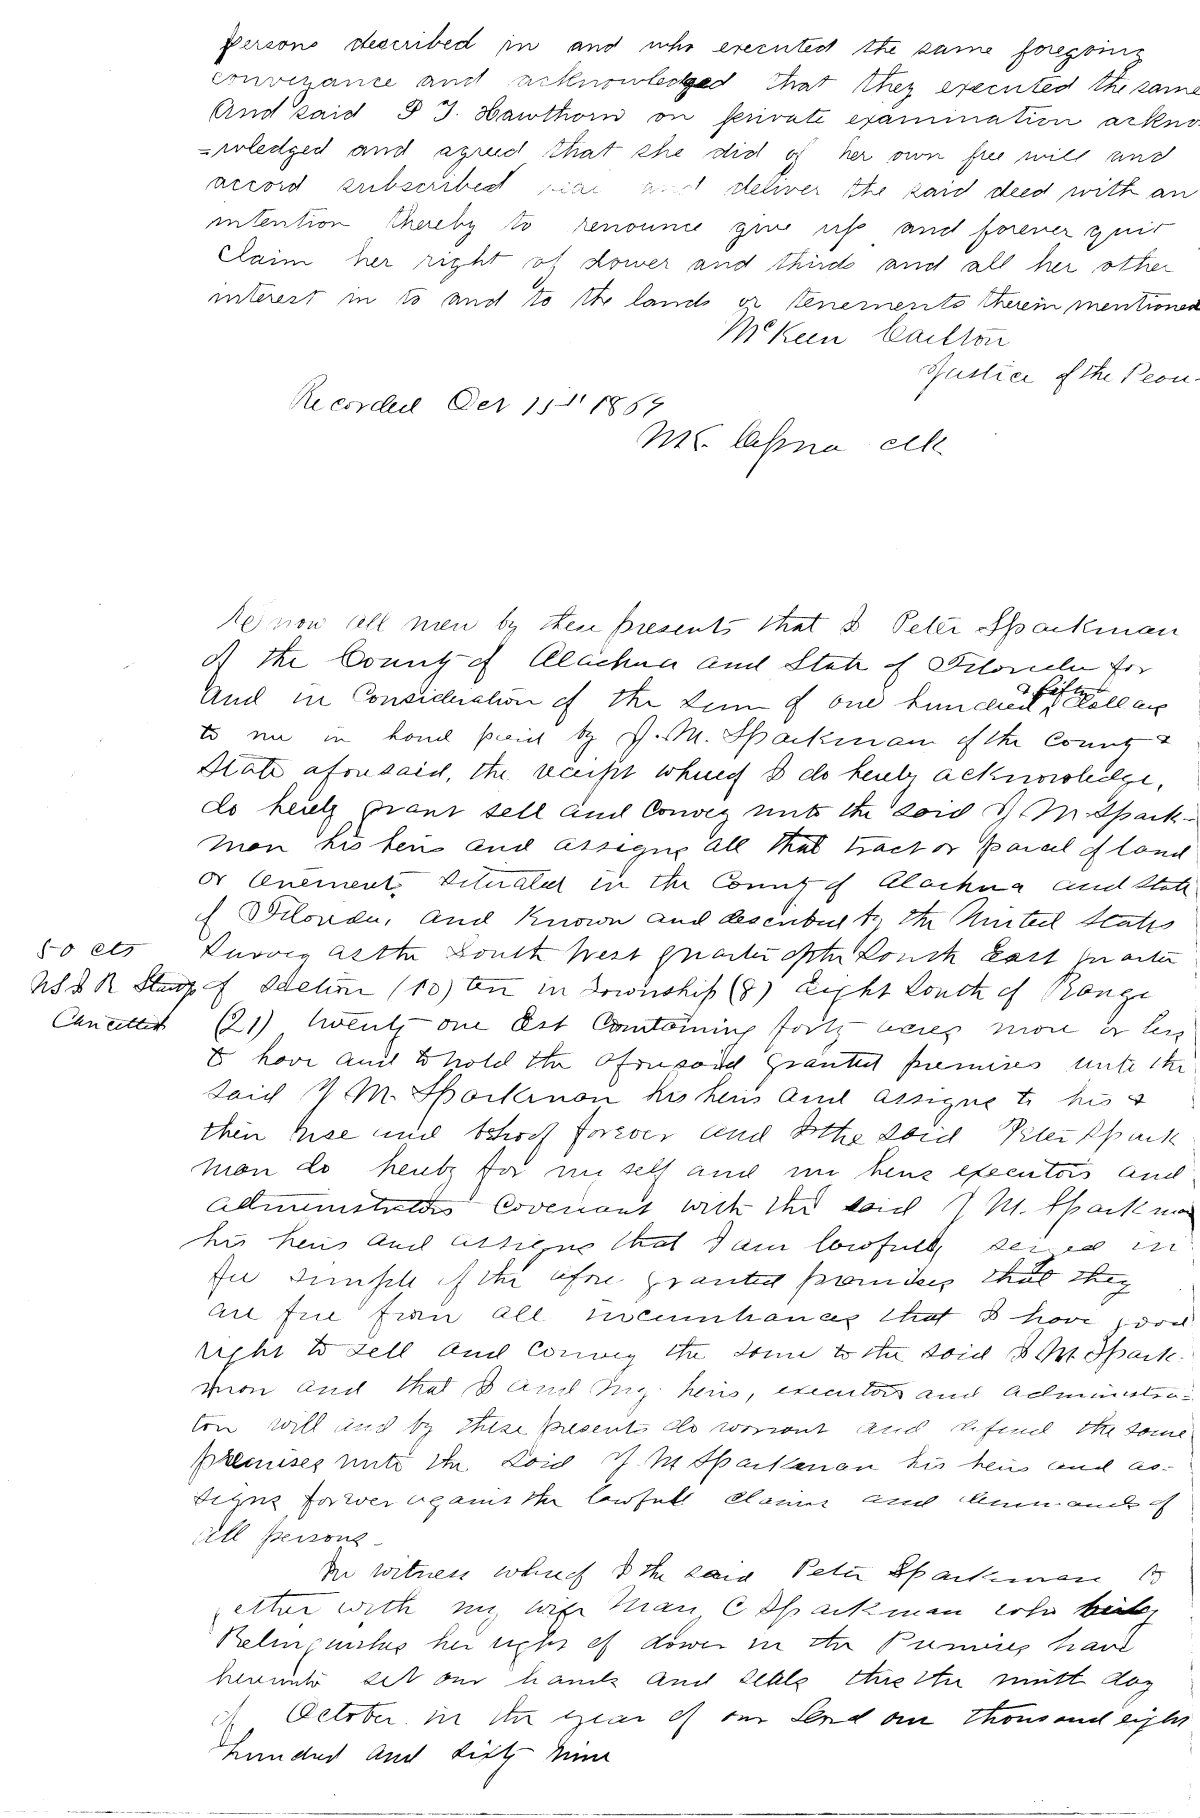 persons described in and who executed the same foregoing
conveyance and acknowledged that they executed the same
And said P J. Hawthorn on private examination ackno-
=wledged and agreed that she did of her own free will and
accord subscribed and deliver the said deed with an
intention thereby to renounce give up and forever quit
claim her right of dower and thirds and all her other
interest in to and to the lands or tenements therein mentioned
McKeen Carlton
Justice of the Peace
Recorded Oct 11st 1869
clk
Know all men by these presents that I Peter Sparkman
of the County of Alachua and State of Florida for
and in Consideration of the sum of one hundred & fifty dollars
to me in hand paid by J. M. Sparkman of the County &
State aforesaid, the receipt whereof I do hereby acknowledge,
do hereby grant sell and Convey unto the said J M. Spark-
man his heirs and assigns all that tract or parcel of land
or tenements situated in the County of Alachua and State
of Florida, and known and described by the United States
Survey as the South West quarter of the South East quarter
50 cts
U S I R Stamp
Cancelled
of section (10) ten in Township (8) Eight South of Range
(21) twenty one Est Containing forty acres more or less
to have and to hold the aforesaid granted premises unto the
said J M. Sparkman his heirs and assigns to his &
their use and behoof forever and I the said Peter Spark
man do hereby for my self and my heirs executors and
administrators Covenant with the said J M. Sparkman
his heirs and assigns that I am lawfully seized in
fee simple of the afore granted premises that they
are free from all incumbrances that I have good
right to sell and convey the same to the said J M Spark-
man and that I and my heirs, executors and administra-
tors will and by these presents do warrant and defend the same
premises unto the said J. M Sparkman his heirs and as-
signs forever against the lawfull claims and demands of
all persons-
In witness whereof I the said Peter Sparkman to
gether with my wife Mary C Sparkman who hereby
Relinquishes her right of dower in the Premises have
hereunto set our hands and seals this the ninth day
of October in the year of our Lord one thousand eight
hundred and sixty nine